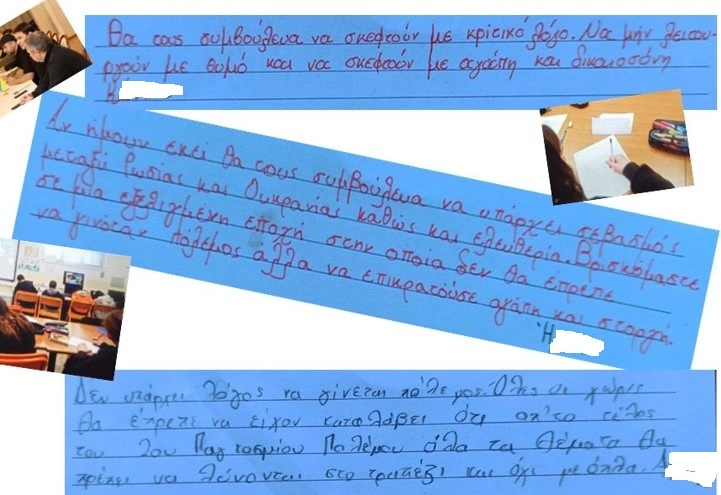 Θα τους συμβούλευα να σκεφτούν με κριτικό λόγο. Να μην λειτου-
ργούν με θυμό και να σκεφτούν με αγάπη και δικαιοσύνη
Αν ήμουν εκεί θα τους συμβούλευα να υπάρχει σεβασμός
μεταξύ Ρωσίας και Ουκρανίας καθώς και ελευθερία. Βρισκόμαστε
σε μια εξελιγμένη εποχή στην οποία δεν θα έπρεπε
να γινόταν πόλεμος αλλά να επικρατούσε αγάπη και στοργή.
Ή
Δεν υπάρχει λόγος να γίνεται πόλεμος. Όλες οι χώρες
θα έπρεπε να είχαν καταλάβει ότι απ'το τέλος
του 2ου Παγκοσμίου Πολέμου όλα τα θέματα θα
πρέπει να λύνονται στο τραπέζι και όχι με όπλα.